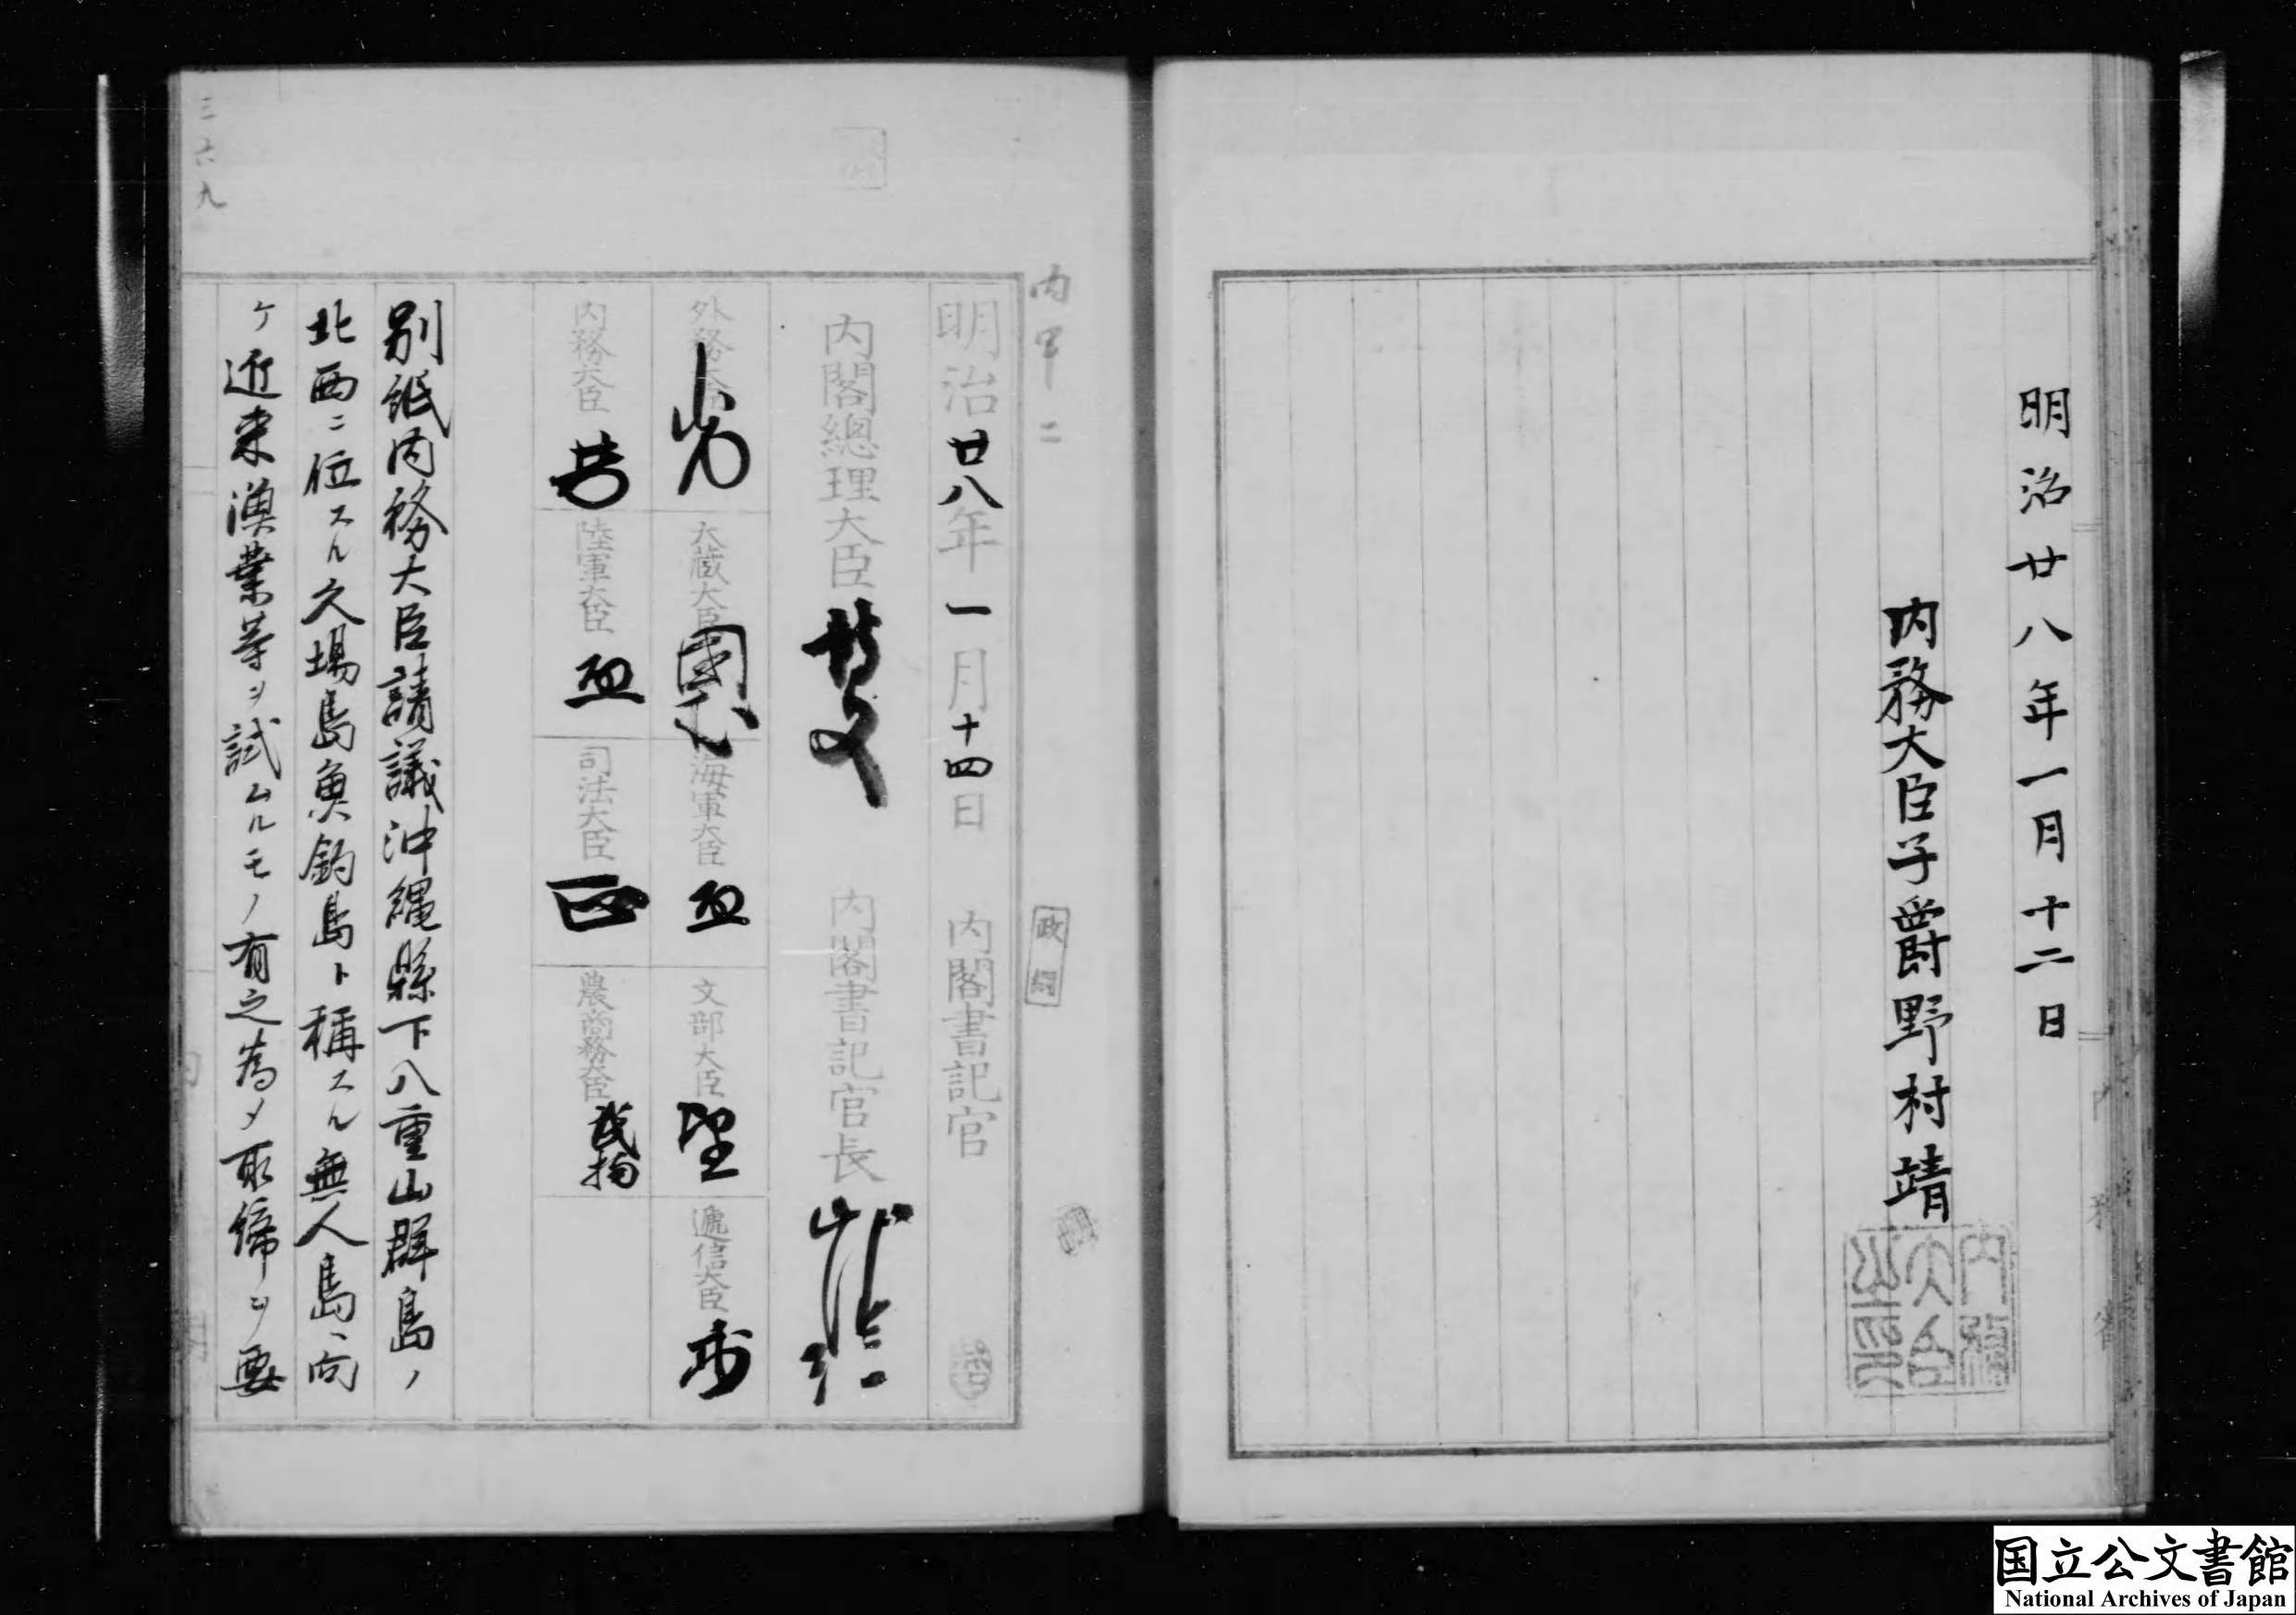 明治廿八年一月十二日
内務大臣子爵野村靖
内務大臣之印
内務省
内甲二
政綱
明治廿八年一月十四日
内閣書記官
内閣總理大臣
内閣書記官長
外務大臣
大蔵大臣
海軍大臣
文部大臣
遞信大臣
内務大臣
陸軍大臣
司法大臣
農商務大臣
別紙内務大臣請議沖縄縣下八重山群島ノ
北西ニ位スル久場島魚釣島ト称スル無人島ヘ向
ケ近来漁業等ヲ試ムルモノ有之為メ取締ヲ要
三六九
国立公文書館
National Archives of Japan